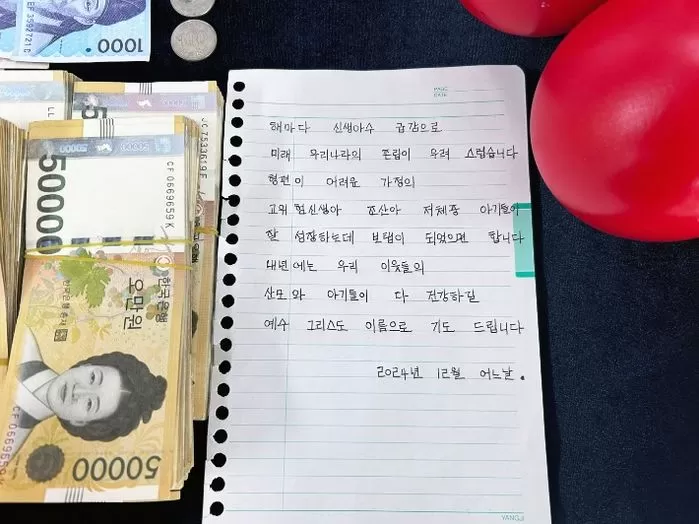 1000
EF 3592721 C
50000
CF 0669659 K
CC 7533619 F
한국은행
오만원
한국은행 총재
CF 0669659 K
50000
PAGE
DATE
해마다 신생아수 급감으로
미래 우리나라의 존립이 우려 스럽습니다
형편이 어려운 가정의
고위험신생아 조산아 저체중 아기들이
잘 성장하는데 보탬이 되었으면 합니다
내년에는 우리 이웃들의
산모와 아기들이 다 건강하길
예수 그리스도 이름으로 기도 드립니다
2024년 12월 어느날.
YANGJI